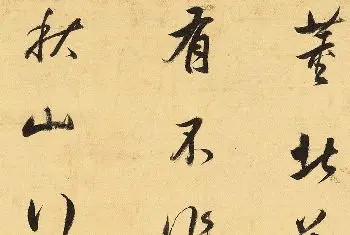 董北
有不
秋山行